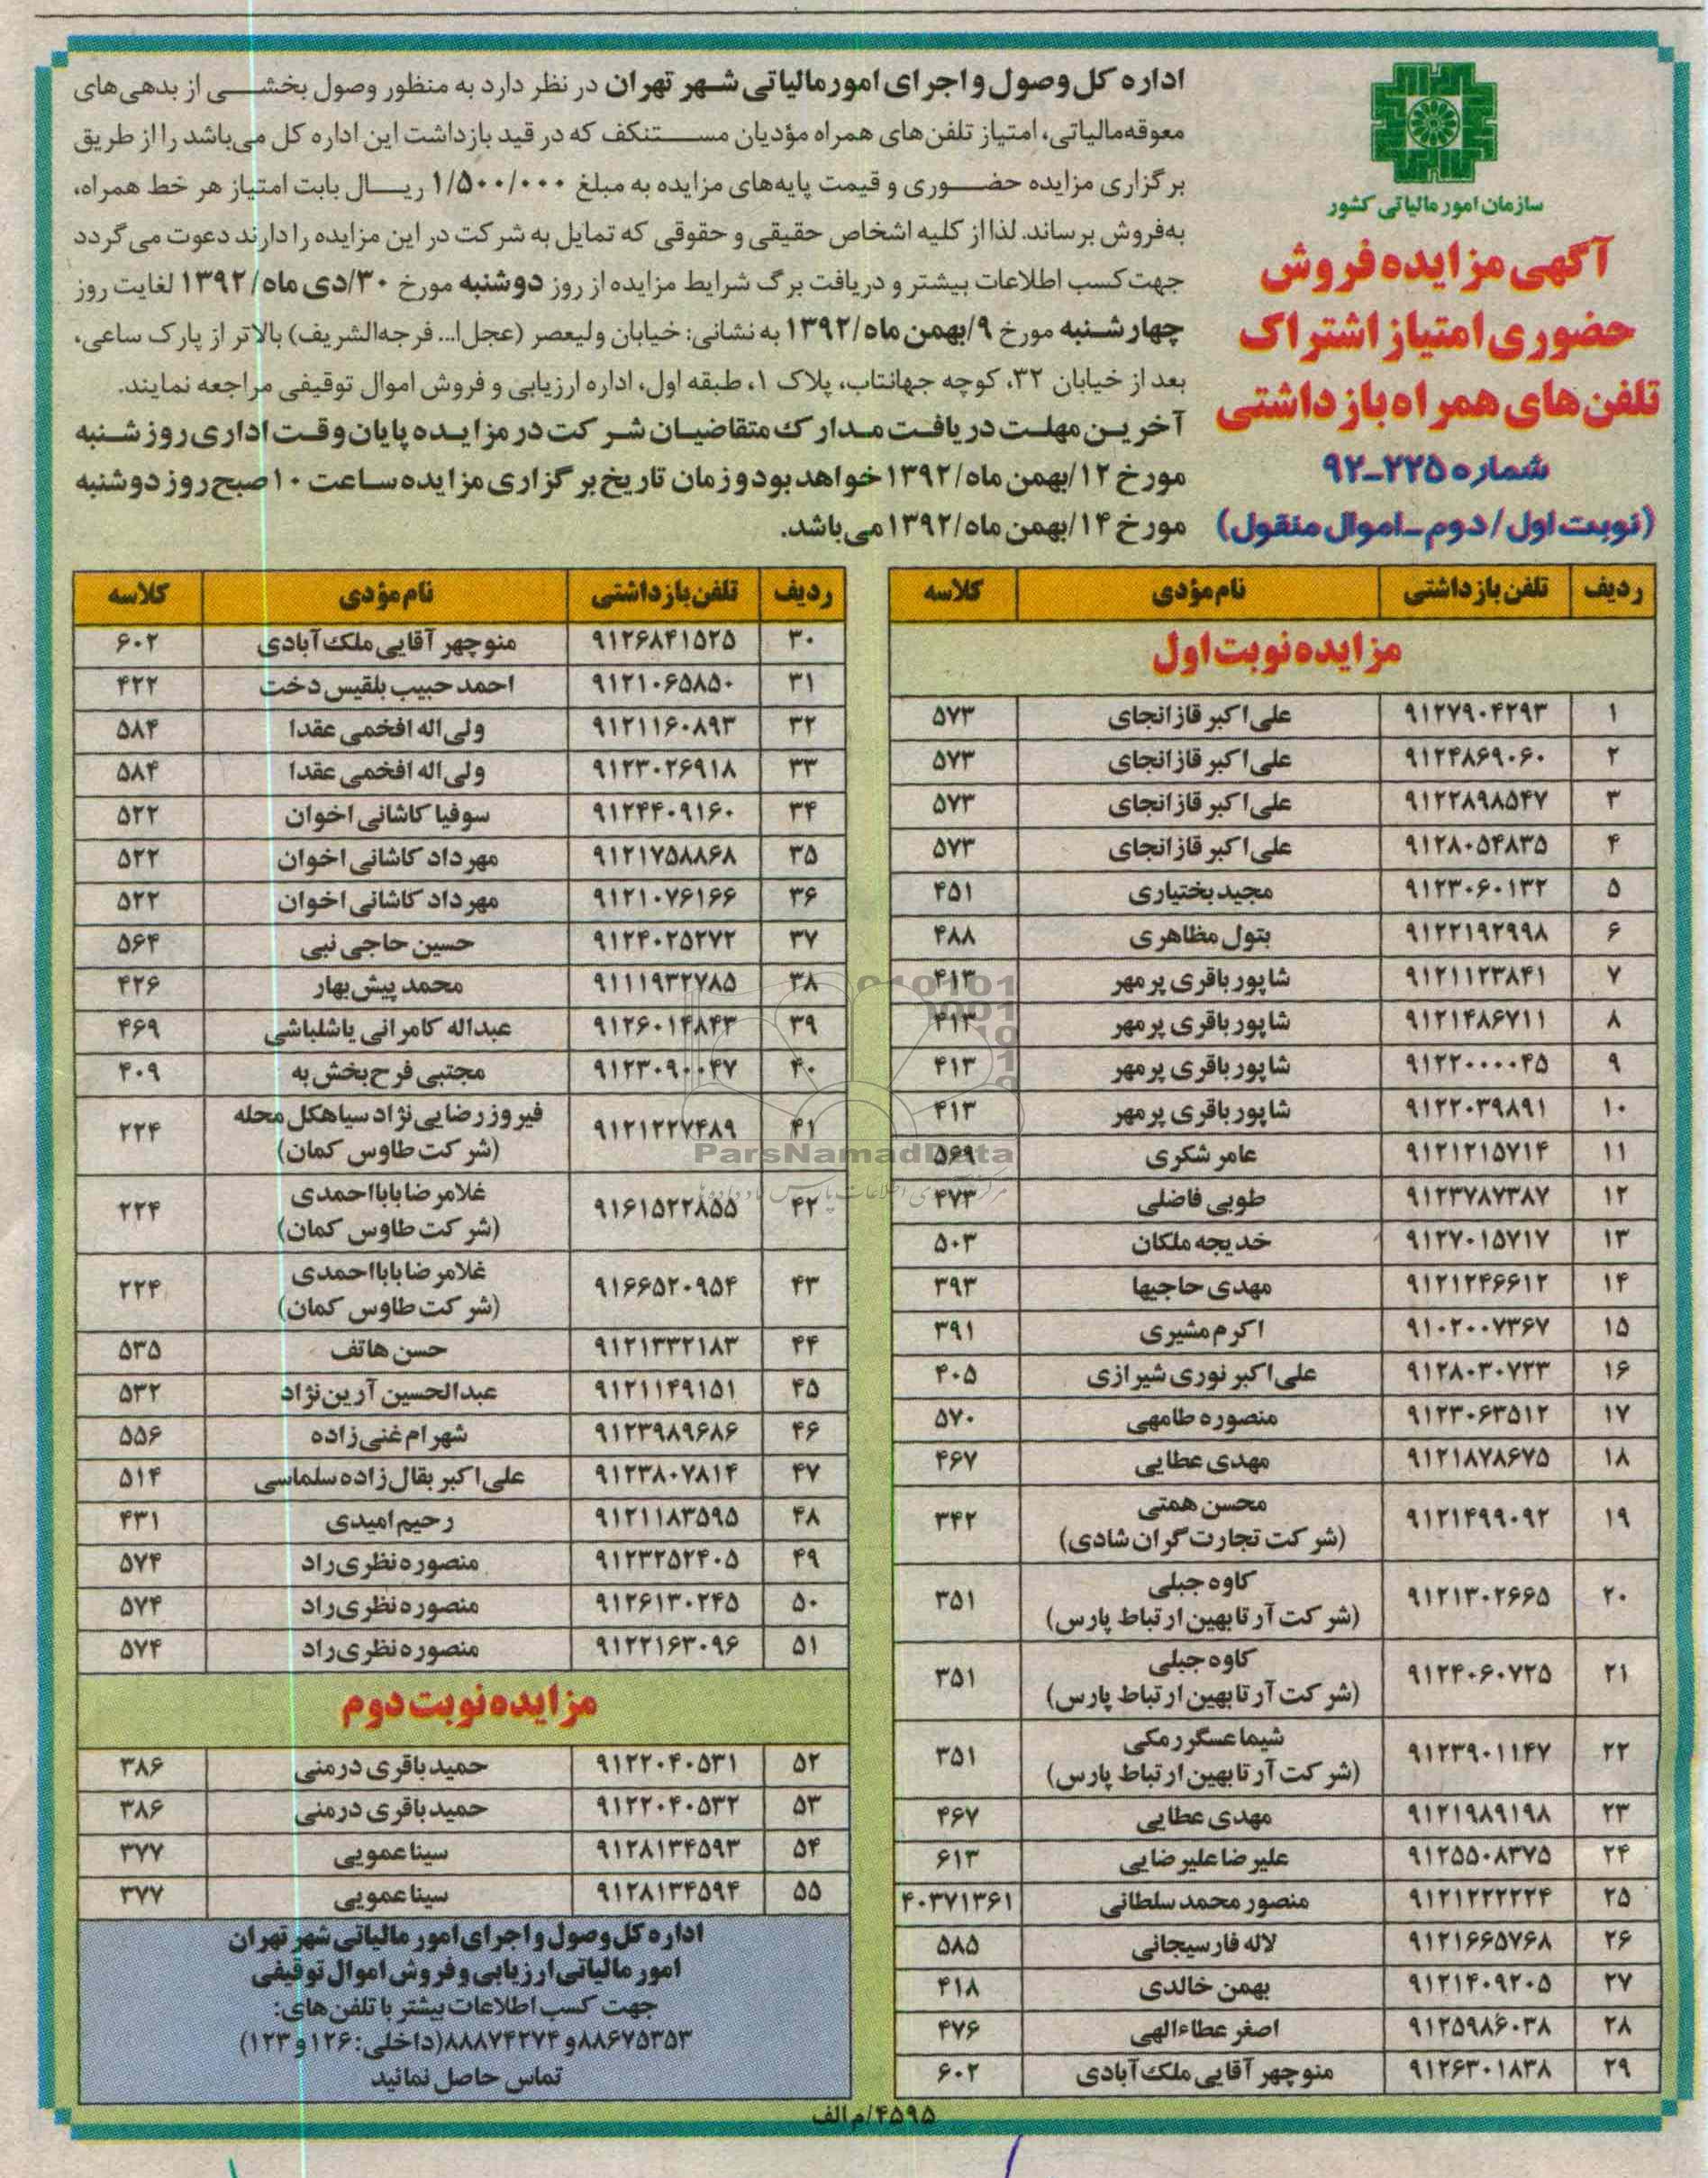 سازمان امور مالیاتی کشور
آگهی مزایده فروش
حضوری امتیاز اشتراک
تلفن‌های همراه بازداشتی
شماره ۲۲۵-۹۲
(نوبت اول/دوم-اموال منقول)
اداره کل وصول و اجرای امور مالیاتی شهر تهران در نظر دارد به منظور وصول بخشی از بدهی‌های
معوقه مالیاتی، امتیاز تلفن‌های همراه مؤدیان مستنکف که در قید بازداشت این اداره کل می‌باشد را از طریق
برگزاری مزایده حضوری و قیمت پایه‌های مزایده به مبلغ ۱/۵۰۰/۰۰۰ ریال بابت امتیاز هر خط همراه،
به‌فروش برساند. لذا از کلیه اشخاص حقیقی و حقوقی که تمایل به شرکت در این مزایده را دارند دعوت می‌گردد
جهت کسب اطلاعات بیشتر و دریافت برگ شرایط مزایده از روز دوشنبه مورخ ۳۰/دی ماه/۱۳۹۲ لغایت روز
چهارشنبه مورخ ۹/بهمن ماه/۱۳۹۲ به نشانی: خیابان ولیعصر (عجل‌ا... فرجه‌الشریف) بالاتر از پارک ساعی،
بعد از خیابان ۳۲، کوچه جهانتاب، پلاک ۱، طبقه اول، اداره ارزیابی و فروش اموال توقیفی مراجعه نمایند.
آخرین مهلت دریافت مدارک متقاضیان شرکت در مزایده پایان وقت اداری روز شنبه
مورخ ۱۲/بهمن ماه/۱۳۹۲ خواهد بود و زمان تاریخ برگزاری مزایده ساعت ۱۰ صبح روز دوشنبه
مورخ ۱۴/بهمن ماه/۱۳۹۲ می‌باشد.
ردیف تلفن بازداشتی نام مؤدی کلاسه
مزایده نوبت اول
۱ ۹۱۲۷۹۰۴۲۹۳ علی اکبر قازانجای ۵۷۳
۲ ۹۱۲۴۸۶۹۰۶۰ علی اکبر قازانجای ۵۷۳
۳ ۹۱۲۲۸۹۸۵۴۷ علی اکبر قازانجای ۵۷۳
۴ ۹۱۲۸۰۵۴۸۳۵ علی اکبر قازانجای ۵۷۳
۵ ۹۱۲۳۰۶۰۱۳۲ مجید بختیاری ۴۵۱
۶ ۹۱۲۲۱۹۲۹۹۸ بتول مظاهری ۴۸۸
۷ ۹۱۲۱۱۲۳۸۴۱ شاپور باقری پرمهر ۴۱۳
۸ ۹۱۲۱۴۸۶۷۱۱ شاپور باقری پرمهر ۴۱۳
۹ ۹۱۲۲۰۰۰۰۴۵ شاپور باقری پرمهر ۴۱۳
۱۰ ۹۱۲۲۰۳۹۸۹۱ شاپور باقری پرمهر ۴۱۳
۱۱ ۹۱۲۱۲۱۵۷۱۴ عامر شکری ۵۶۹
۱۲ ۹۱۲۳۷۸۷۳۸۷ طوبی فاضلی ۴۷۳
۱۳ ۹۱۲۷۰۱۵۷۱۷ خدیجه ملکان ۵۰۳
۱۴ ۹۱۲۱۲۴۶۶۱۲ مهدی حاجیها ۳۹۳
۱۵ ۹۱۰۲۰۰۷۳۶۷ اکرم مشیری ۳۹۱
۱۶ ۹۱۲۸۰۳۰۷۲۳ علی اکبر نوری شیرازی ۴۰۵
۱۷ ۹۱۲۳۰۶۳۵۱۲ منصوره طامهی ۵۷۰
۱۸ ۹۱۲۱۸۷۸۶۷۵ مهدی عطایی ۴۶۷
۱۹ ۹۱۲۱۴۹۹۰۹۲ محسن همتی ۳۴۲
(شرکت تجارت گران شادی)
۲۰ ۹۱۲۱۳۰۲۶۶۵ کاوه جبلی ۳۵۱
(شرکت آرتابهین ارتباط پارس)
۲۱ ۹۱۲۴۰۶۰۷۲۵ کاوه جبلی ۳۵۱
(شرکت آرتابهین ارتباط پارس)
۲۲ ۹۱۲۳۹۰۱۱۴۷ شیما عسگر رمکی ۳۵۱
(شرکت آرتابهین ارتباط پارس)
۲۳ ۹۱۲۱۹۸۹۱۹۸ مهدی عطایی ۴۶۷
۲۴ ۹۱۲۵۵۰۸۳۷۵ علیرضا علیرضایی ۶۱۳
۲۵ ۹۱۲۱۲۲۲۲۲۴ منصور محمد سلطانی ۴۰۳۷۱۳۶۱
۲۶ ۹۱۲۱۶۶۵۷۶۸ لاله فارسیجانی ۵۸۵
۲۷ ۹۱۲۱۴۰۹۲۰۵ بهمن خالدی ۴۱۸
۲۸ ۹۱۲۵۹۸۶۰۳۸ اصغر عطاءالهی ۴۷۶
۲۹ ۹۱۲۶۳۰۱۸۳۸ منوچهر آقایی ملک آبادی ۶۰۲
ردیف تلفن بازداشتی نام مؤدی کلاسه
۳۰ ۹۱۲۶۸۴۱۵۲۵ منوچهر آقایی ملک آبادی ۶۰۲
۳۱ ۹۱۲۱۰۶۵۸۵۰ احمد حبیب بلقیس دخت ۴۲۲
۳۲ ۹۱۲۱۱۶۰۸۹۳ ولی اله افخمی عقدا ۵۸۴
۳۳ ۹۱۲۳۰۲۶۹۱۸ ولی اله افخمی عقدا ۵۸۴
۳۴ ۹۱۲۴۴۰۹۱۶۰ سوفیا کاشانی اخوان ۵۲۲
۳۵ ۹۱۲۱۷۵۸۸۶۸ مهرداد کاشانی اخوان ۵۲۲
۳۶ ۹۱۲۱۰۷۶۱۶۶ مهرداد کاشانی اخوان ۵۲۲
۳۷ ۹۱۲۴۰۲۵۲۷۲ حسین حاجی نبی ۵۶۴
۳۸ ۹۱۱۱۹۳۲۷۸۵ محمد پیش بهار ۴۲۶
۳۹ ۹۱۲۶۰۱۴۸۴۳ عبداله کامرانی یاشلباشی ۴۶۹
۴۰ ۹۱۲۳۰۹۰۰۴۷ مجتبی فرح بخش به ۴۰۹
۴۱ ۹۱۲۱۲۲۷۴۸۹ فیروز رضایی نژاد سیاهکل محله ۲۲۴
(شرکت طاوس کمان)
۴۲ ۹۱۶۱۵۲۲۸۵۵ غلامرضا بابااحمدی ۲۲۴
(شرکت طاوس کمان)
۴۳ ۹۱۶۶۵۲۰۹۵۴ غلامرضا بابااحمدی ۲۲۴
(شرکت طاوس کمان)
۴۴ ۹۱۲۱۳۳۲۱۸۳ حسن هاتف ۵۳۵
۴۵ ۹۱۲۱۱۴۹۱۵۱ عبدالحسین آرین نژاد ۵۳۲
۴۶ ۹۱۲۳۹۸۹۶۸۶ شهرام غنی زاده ۵۵۶
۴۷ ۹۱۲۳۸۰۷۸۱۴ علی اکبر بقال زاده سلماسی ۵۱۴
۴۸ ۹۱۲۱۱۸۳۵۹۵ رحیم امیدی ۴۳۱
۴۹ ۹۱۲۳۲۵۲۴۰۵ منصوره نظری راد ۵۷۴
۵۰ ۹۱۲۶۱۳۰۲۴۵ منصوره نظری راد ۵۷۴
۵۱ ۹۱۲۲۱۶۳۰۹۶ منصوره نظری راد ۵۷۴
مزایده نوبت دوم
۵۲ ۹۱۲۲۰۴۰۵۳۱ حمید باقری درمنی ۳۸۶
۵۳ ۹۱۲۲۰۴۰۵۳۲ حمید باقری درمنی ۳۸۶
۵۴ ۹۱۲۸۱۳۴۵۹۳ سینا عمویی ۳۷۷
۵۵ ۹۱۲۸۱۳۴۵۹۴ سینا عمویی ۳۷۷
اداره کل وصول و اجرای امور مالیاتی شهر تهران
امور مالیاتی ارزیابی و فروش اموال توقیفی
جهت کسب اطلاعات بیشتر با تلفن‌های:
۸۸۶۷۵۳۵۳ و ۸۸۸۷۴۲۷۴ (داخلی: ۱۲۶ و ۱۲۳)
تماس حاصل نمائید
۴۵۹۵/م الف
ParsNamadData